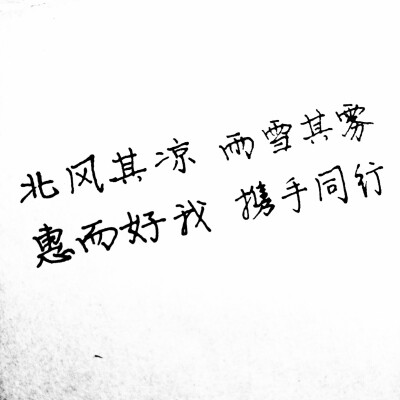 北风其凉 雨雪其雾
惠而好我 携手同行